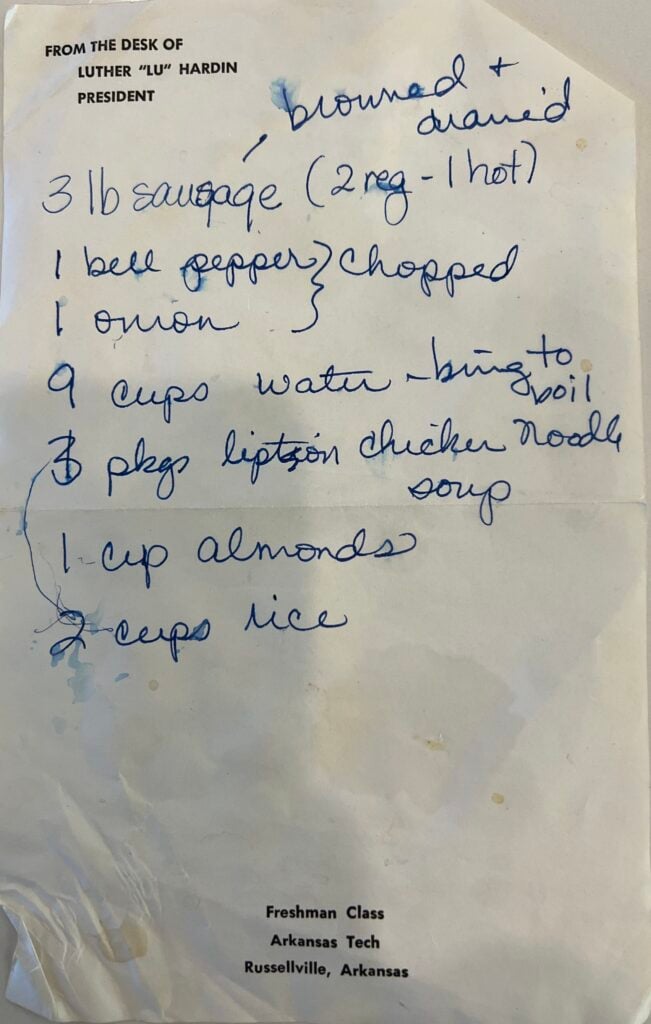 FROM THE DESK OF
LUTHER "LU" HARDIN
PRESIDENT
browned +
drained
3 lb sausage (2 reg - 1 hot)
1 bell pepper } chopped
1 onion
9 cups water - bring to
boil
pkgs lipton chicken noodle
soup
1 cup almonds
2 cups rice
Freshman Class
Arkansas Tech
Russellville, Arkansas